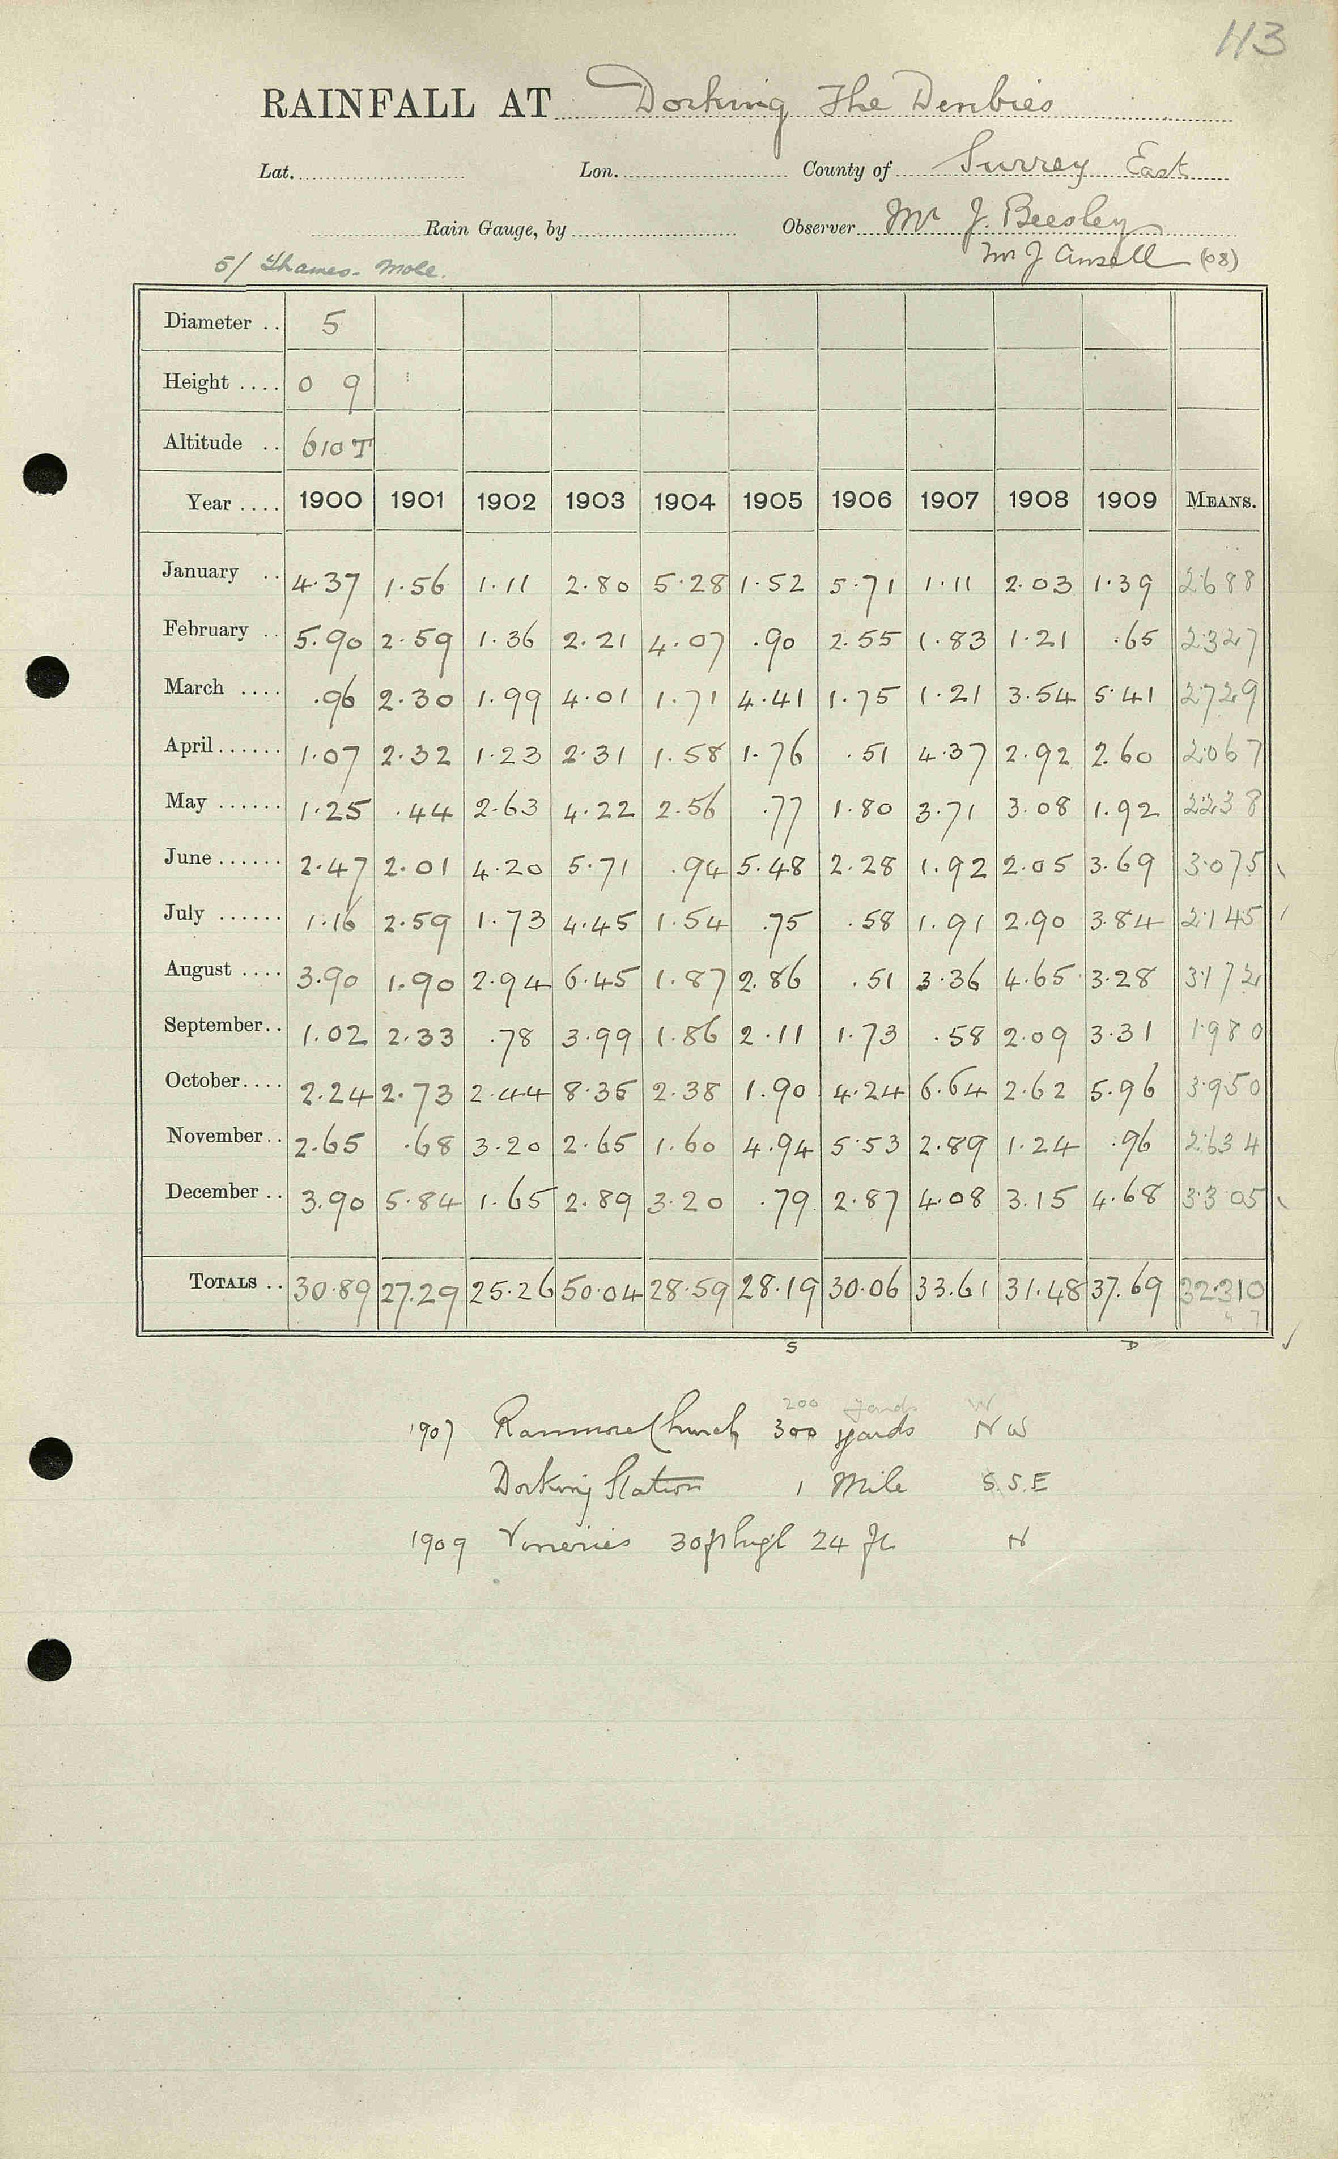 113
RAINFALL AT Dorking The Denbies
Lat. Lon. County of Surrey East
Rain Gauge, by Observer Mr J. Beesley
5/ Thames - Mole. Mr J Ansell (08)
Diameter .. 5
Height .... 0 9
Altitude .. 610 T
Year .... 1900 1901 1902 1903 1904 1905 1906 1907 1908 1909 MEANS.
January .. 4.37 1.56 1.11 2.80 5.28 1.52 5.71 1.11 2.03 1.39 2.688
February .. 5.90 2.59 1.36 2.21 4.07 .90 2.55 1.83 1.21 .65 2.327
March .... .96 2.30 1.99 4.01 1.71 4.41 1.75 1.21 3.54 5.41 2.729
April...... 1.07 2.32 1.23 2.31 1.58 1.76 .51 4.37 2.92 2.60 2.067
May ...... 1.25 .44 2.63 4.22 2.56 .77 1.80 3.71 3.08 1.92 2238
June...... 2.47 2.01 4.20 5.71 .94 5.48 2.28 1.92 2.05 3.69 3.075
July ...... 1.16 2.59 1.73 4.45 1.54 .75 .58 1.91 2.90 3.84 2.145
August .... 3.90 1.90 2.94 6.45 1.87 2.86 .51 3.36 4.65 3.28 3.172
September.. 1.02 2.33 .78 3.99 1.86 2.11 1.73 .58 2.09 3.31 1.980
October.... 2.24 2.73 2.44 8.35 2.38 1.90 4.24 6.64 2.62 5.96 3.950
November.. 2.65 .68 3.20 2.65 1.60 4.94 5.53 2.89 1.24 .96 2.634
December .. 3.90 5.84 1.65 2.89 3.20 .79 2.87 4.08 3.15 4.68 3.305
TOTALS .. 30.89 27.29 25.26 50.04 28.59 28.19 30.06 33.61 31.48 37.69 32.310
S D
200 yards W
1907 Ranmore Church 300 yards NW
Dorking Station 1 Mile S.S.E
1909 Vineries 30ft high 24 ft N